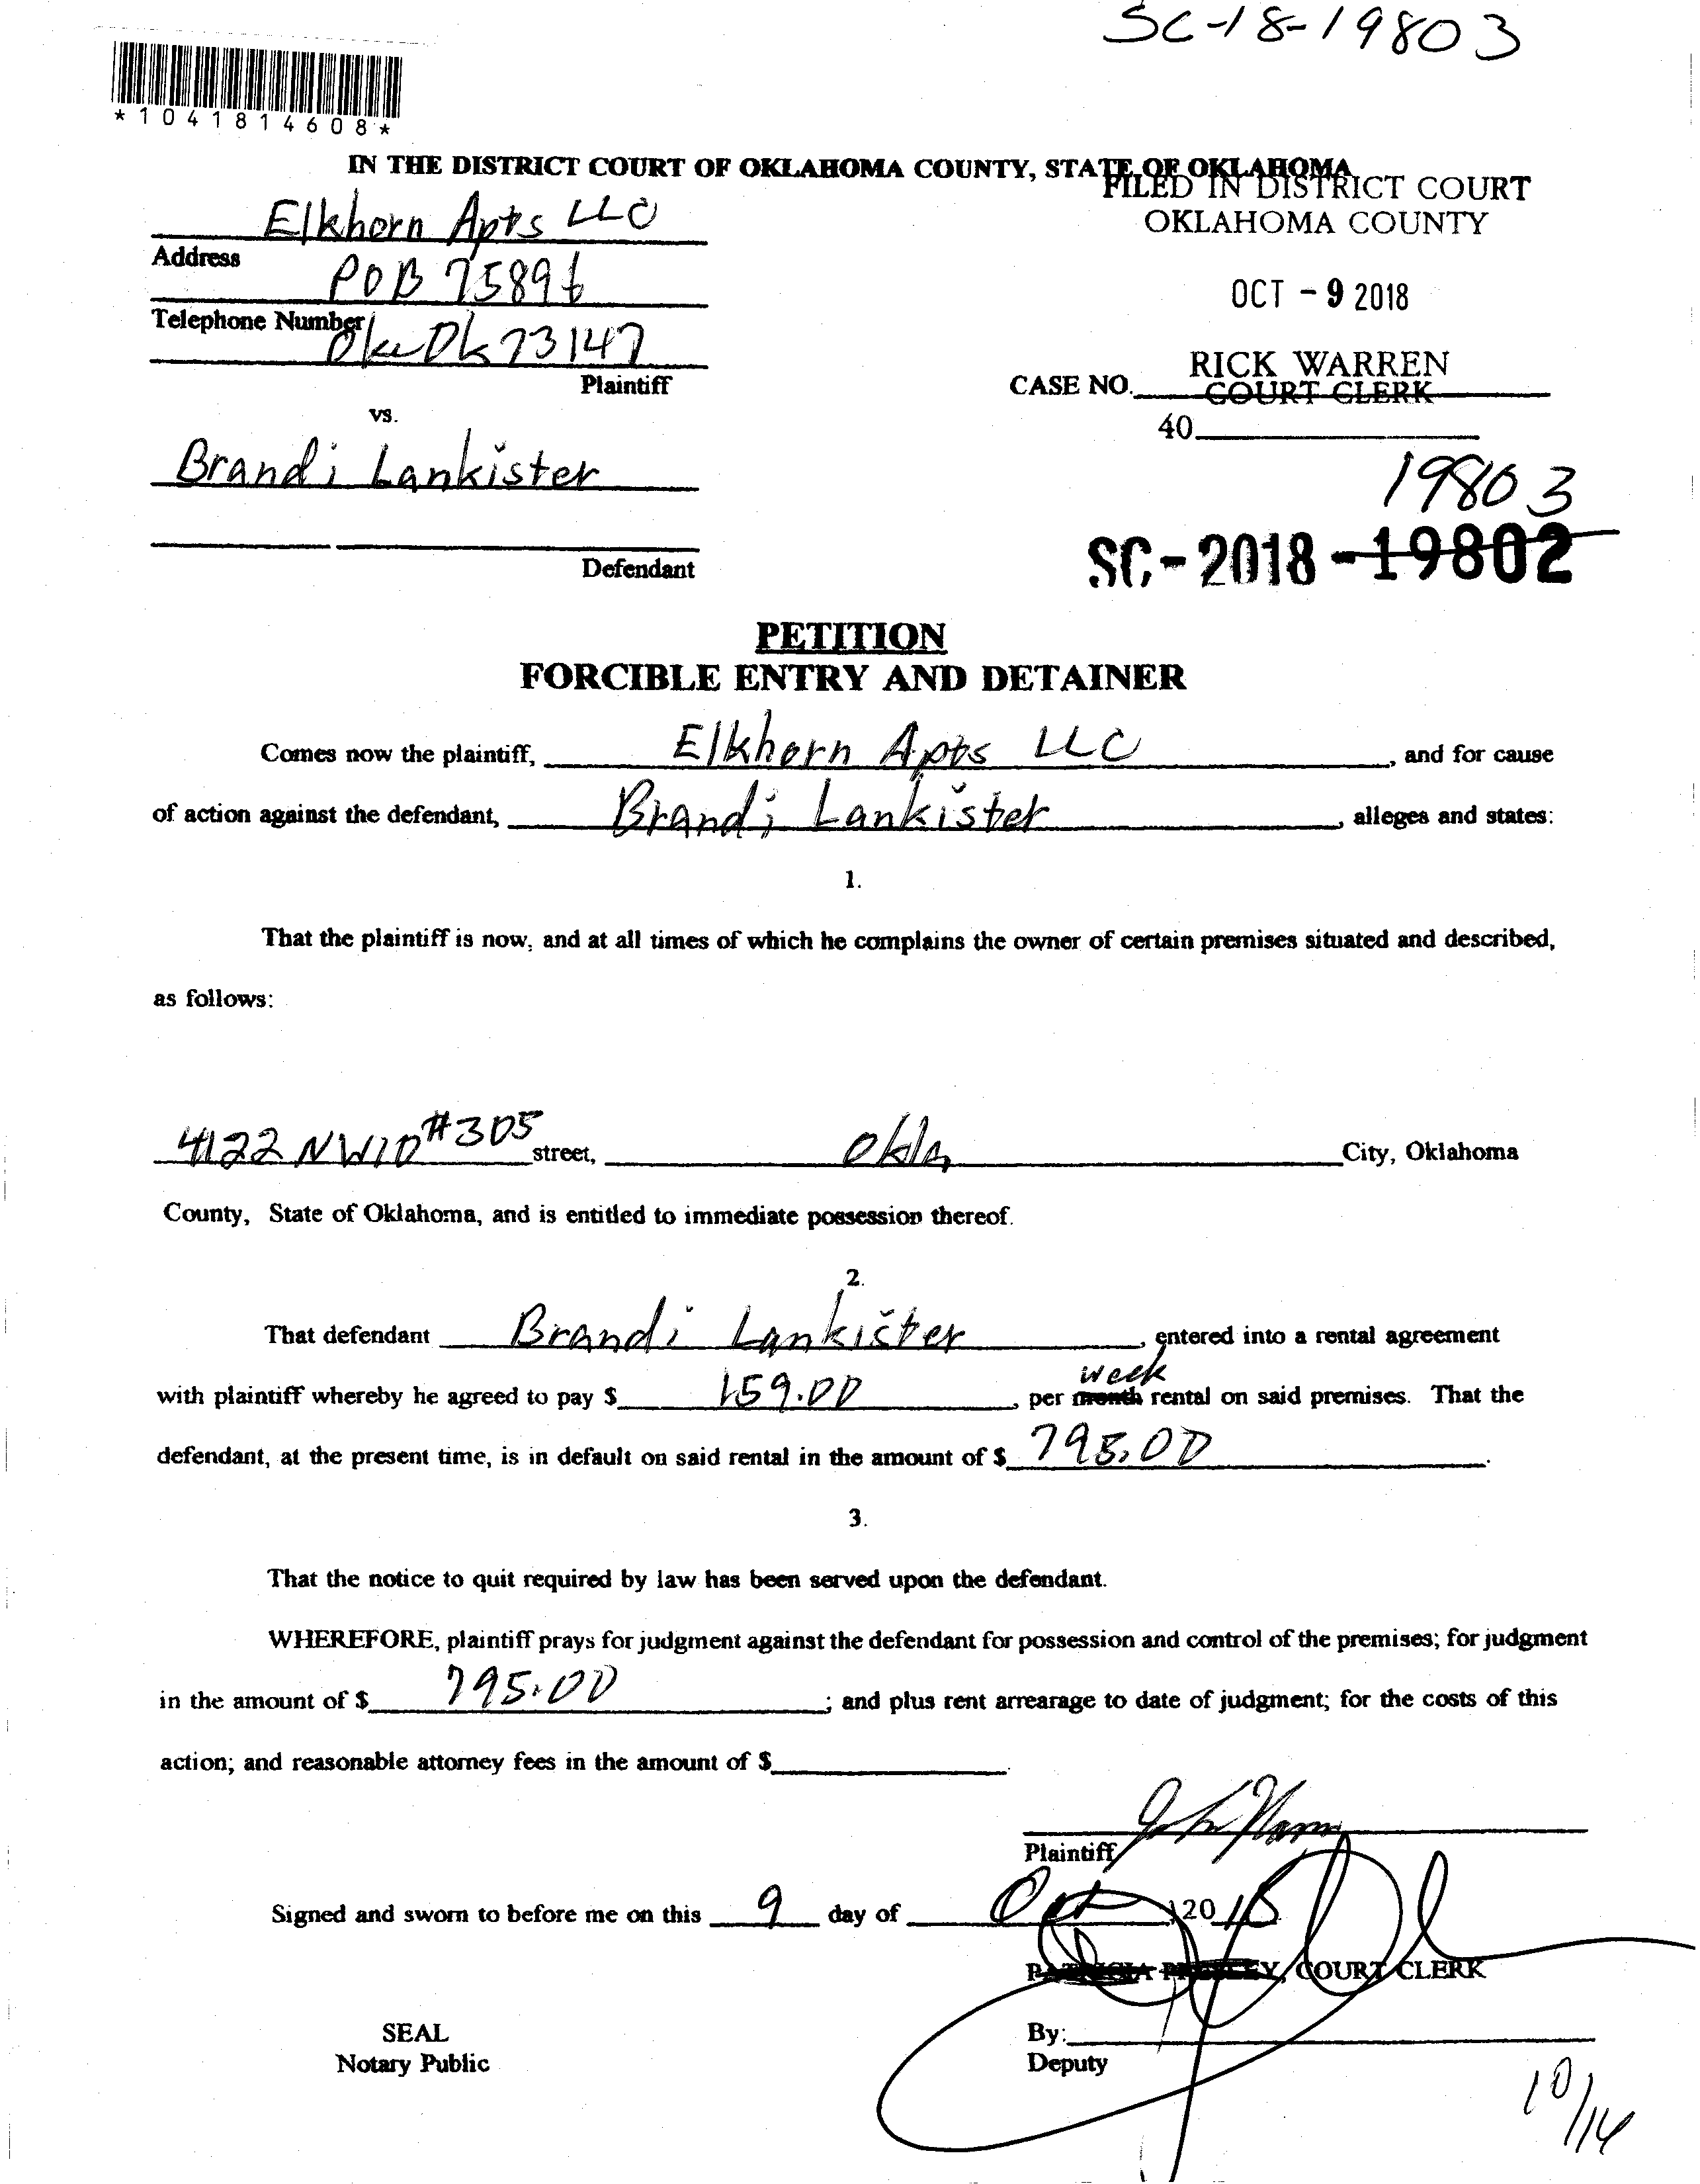 SC-18-19803
*1041814608*
IN THE DISTRICT COURT OF OKLAHOMA COUNTY, STATE OF OKLAHOMA
FILED IN DISTRICT COURT
OKLAHOMA COUNTY
Elkhorn Apts LLC
Address
POB 75896
OCT - 9 2018
Telephone Number
Ok 73147
Plaintiff
RICK WARREN
CASE NO. COURT CLERK
vs.
40
Brandi Lankister
19803
Defendant
SC-2018-19802
PETITION
FORCIBLE ENTRY AND DETAINER
Comes now the plaintiff, Elkhorn Apts LLC, and for cause
of action against the defendant, Brandi Lankister, alleges and states:
1.
That the plaintiff is now, and at all times of which he complains the owner of certain premises situated and described,
as follows:
4122 NW10 #305 street, Okla City, Oklahoma
County, State of Oklahoma, and is entitled to immediate possession thereof.
2.
That defendant Brandi Lankister, entered into a rental agreement
week
with plaintiff whereby he agreed to pay $ 159.00, per month rental on said premises. That the
defendant, at the present time, is in default on said rental in the amount of $ 795.00.
3.
That the notice to quit required by law has been served upon the defendant.
WHEREFORE, plaintiff prays for judgment against the defendant for possession and control of the premises; for judgment
in the amount of $ 795.00; and plus rent arrearage to date of judgment; for the costs of this
action; and reasonable attorney fees in the amount of $
Plaintiff
Signed and sworn to before me on this 9 day of Oct, 20 18
PATRICIA PRESLEY, COURT CLERK
SEAL
By:
Notary Public
Deputy